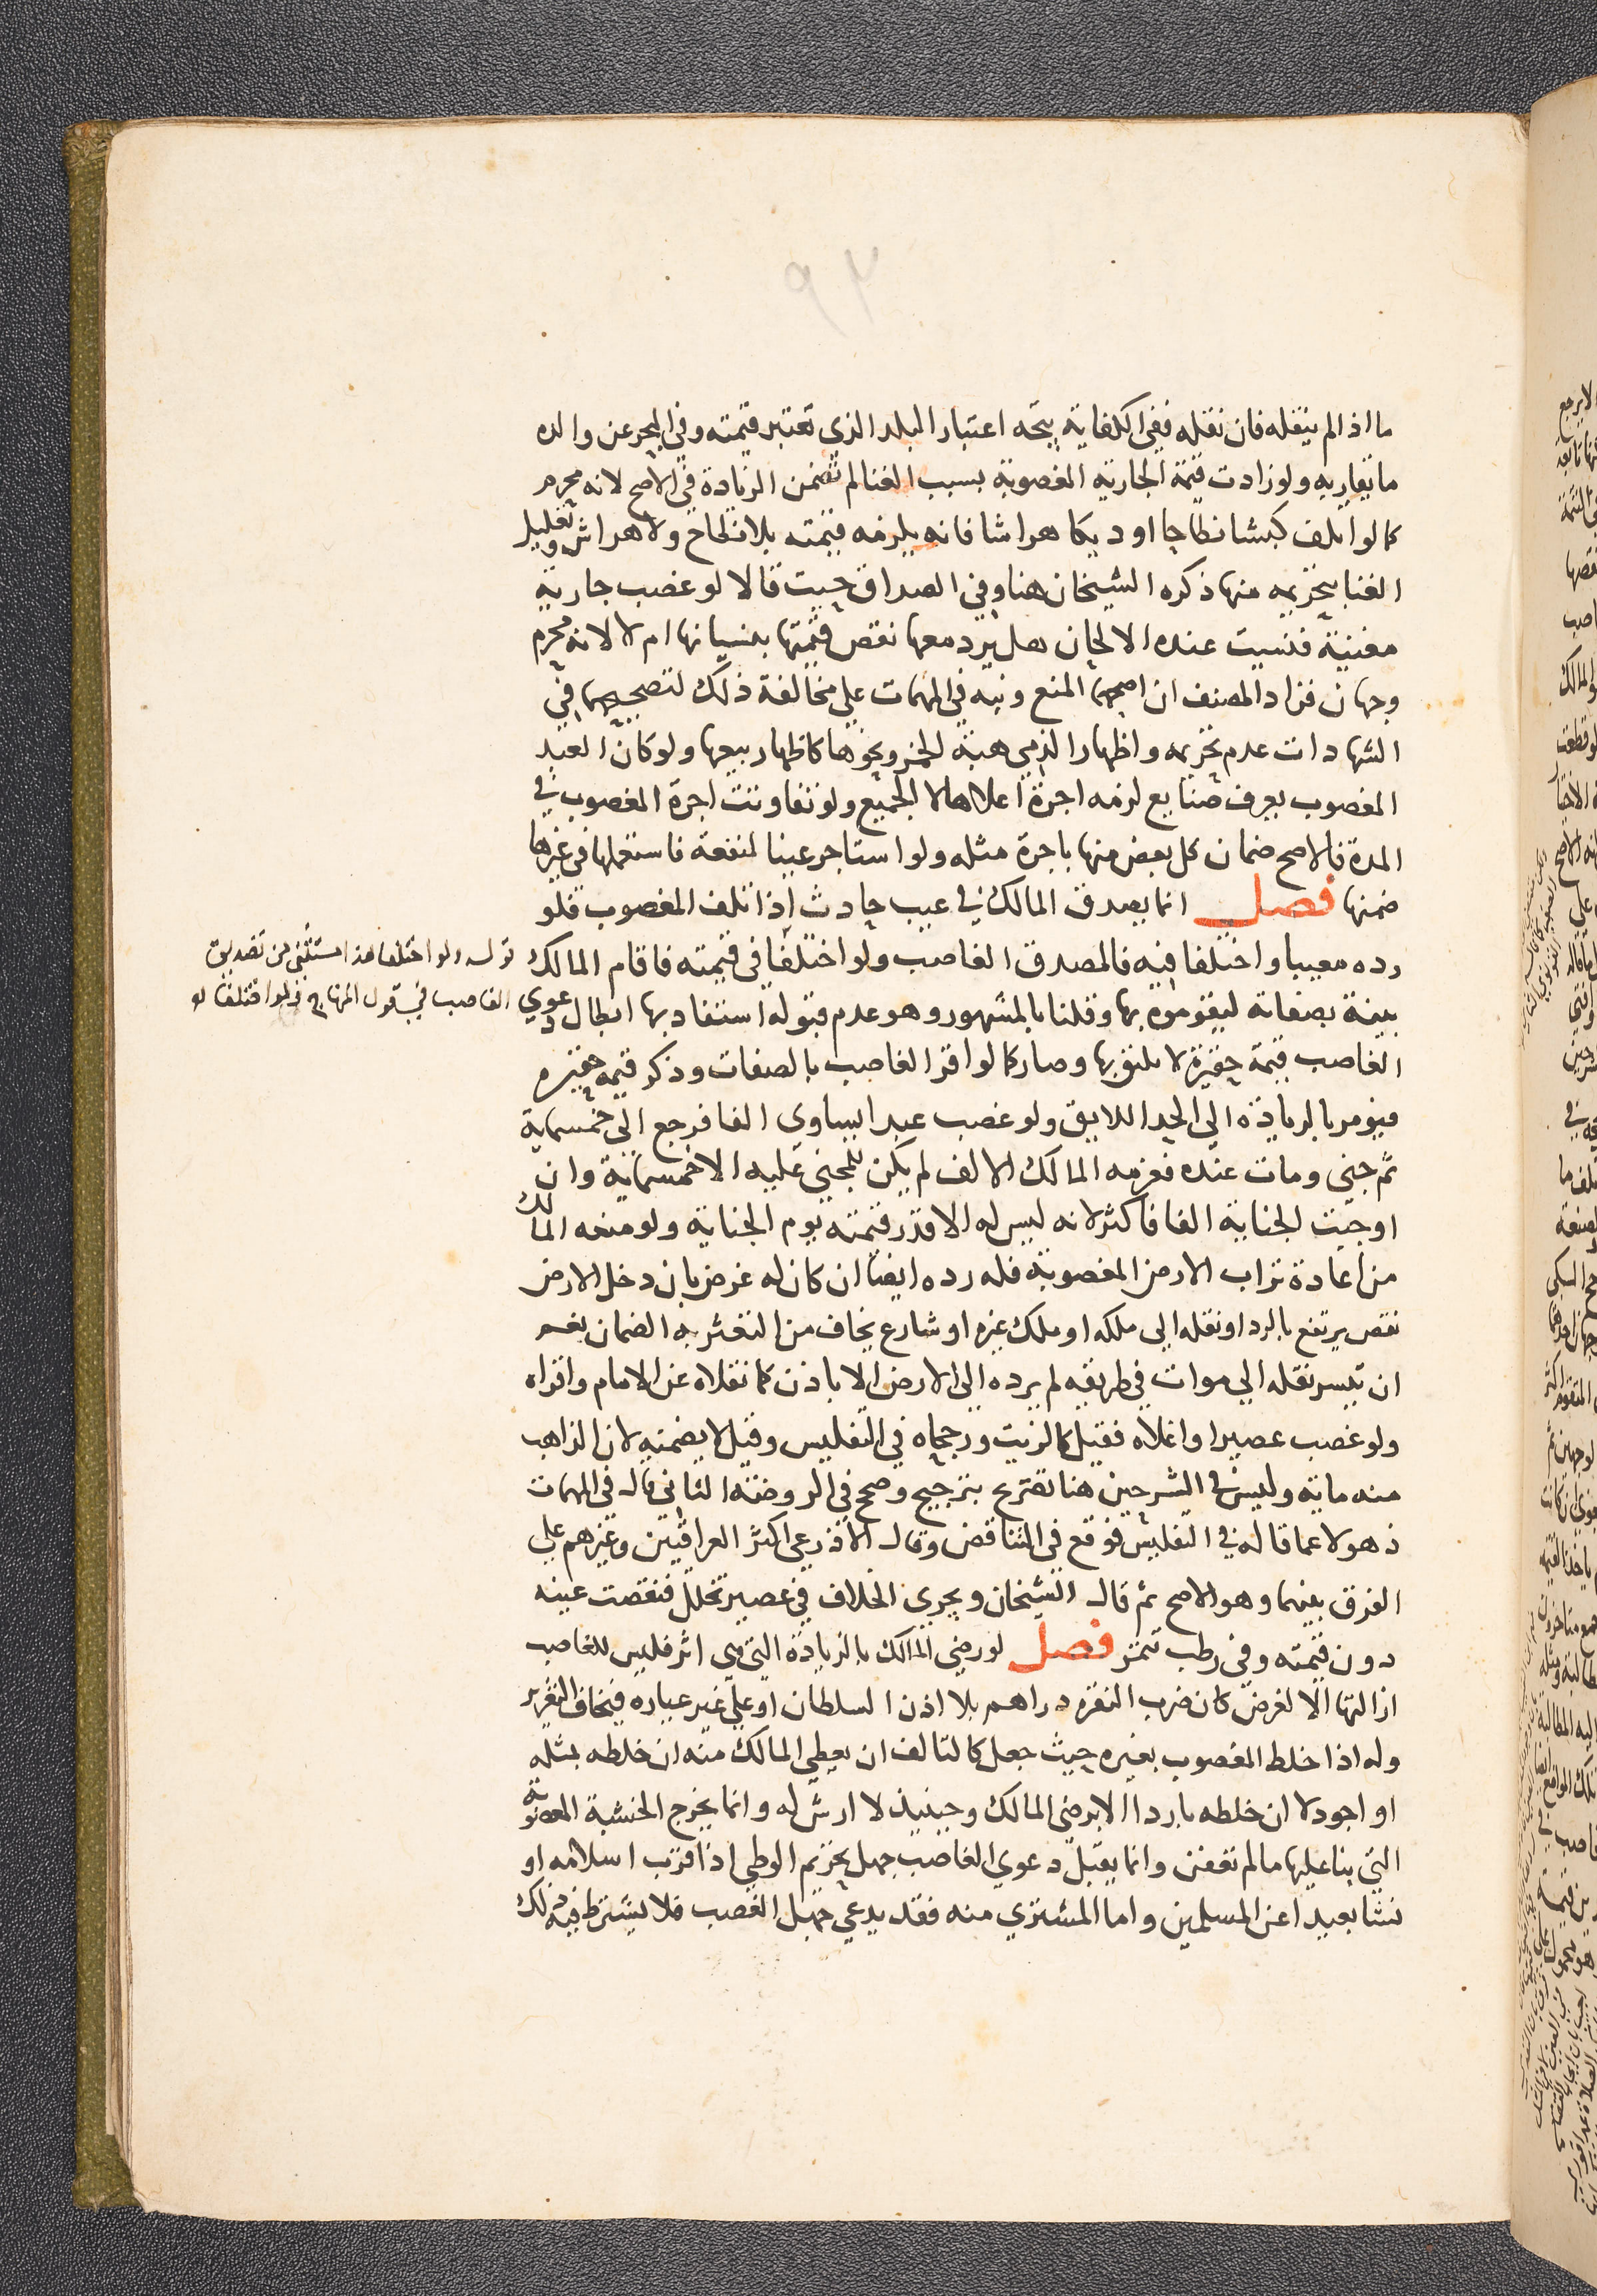 ٩٢
ما اذا لم ينقله فان نقله ففي الكفاية يتجه اعتبار البلد الذي تعتبر قيمته وفي البحر عن والده
ما يقاربه ولو زادت قيمة الجارية المغصوبة بسبب الغنا لم تضمن الزيادة في الاصح لانه محرم
كما لو اتلف كبشا نطاحا او ديكا هراشا فانه يلزمه قيمته بلا نطاح ولا هراش وتعليل
الغنا بتحريمه منها ذكره الشيخان هنا وفي الصداق حيث قالا لو غصب جارية
مغنية فنسيت عنده الالحان هل يرد معها نقص قيمتها بنسيانها ام لا لانه محرم
وجهان فزاد المصنف ان اصحهما المنع ونبه في المهمات على مخالفة ذلك لتصحيحهما في
الشهادات عدم تحريمه واظهار الذمي هبة الخمر ونحوها كاظهار بيعها ولو كان العبد
المغصوب يعرف صنايع لزمه اجرة اعلاها لا الجميع ولو تفاوتت اجرة المغصوب في
المدة فالاصح ضمان كل بعض منها باجرة مثله ولو استاجر عينا لمنفعة فاستعملها في غيرها
ضمنها فصل انما يصدق المالك في عيب حادث اذا تلف المغصوب فلو
رده معيبا واختلفا فيه فالمصدق الغاصب ولو اختلفا في قيمته فاقام المالك
بينة بصفاته ليقوموه بها وقلنا بالمشهور وهو عدم قبوله استفاد بها ابطال دعوي
الغاصب قيمة حقيرة لا يليق بها وصار كما لو اقر الغاصب بالصفات وذكر قيمه حقيره
فيومر بالزيادة الى الحد اللايق ولو غصب عبدا يساوي الفا فرجع الى خمسماية
ثم جنى ومات عنده فغرمه المالك الالف لم يكن للمجني عليه الا خمسماية وان
اوجبت الجناية الفا فاكثر لانه ليس له الا قدر قيمته يوم الجناية ولو منعه المالك
من اعادة تراب الارض المغصوبة فله رده ايضا ان كان له غرض بان دخل الارض
نقص يرتفع بالرد او نقله الي ملكه او ملك غيره او شارع يخاف من التعثر به الضمان نعم
ان تيسر نقله الي موات في طريقه لم يرده الى الارض الا باذن كما نقلاه عن الامام واقراه
ولو غصب عصيرا واغلاه فقيل كالزيت ورجحاه في التفليس وقيل لا يضمنه لان الذاهب
منه ماية وليس في الشرحين هنا تصريح بترجيح وصحح في الروضة الثاني قال في المهمات
ذهولا عما قاله في التفليس فوقع في التناقض وقال الاذرعي اكثر العراقيين وغيرهم على
الفرق بينهما وهو الاصح ثم قال الشيخان ويجري الخلاف في عصير تخلل فنقصت عينه
دون قيمته وفي رطب تتمر فصل لو رضي المالك بالزيادة التي هي اثر فليس للغاصب
ازالتها الا لغرض كان ضرب النقرة دراهم بلا اذن السلطان او على غير عياره فيخاف التغرير
وله اذا خلط المغصوب بغيره حيث جعل كالتالف ان يعطي المالك منه ان خلطه بمثله
او اجود لا ان خلطه باردا الا برضى المالك وحينيذ لا ارش له وانما يخرج الخشبة المغصوبة
التي بنا عليها ما لم تعفن وانما يقبل دعوي الغاصب جهل تحريم الوطي اذا قرب اسلامه او
نشا بعيدا عن المسلمين واما المشتري منه فقد يدعي جهل الغصب فلا يشترط فيه ذلك
قوله ولو اختلفا هذا مستثنى من تصديق
الغاصب في قول المنهاج ولو اختلفا